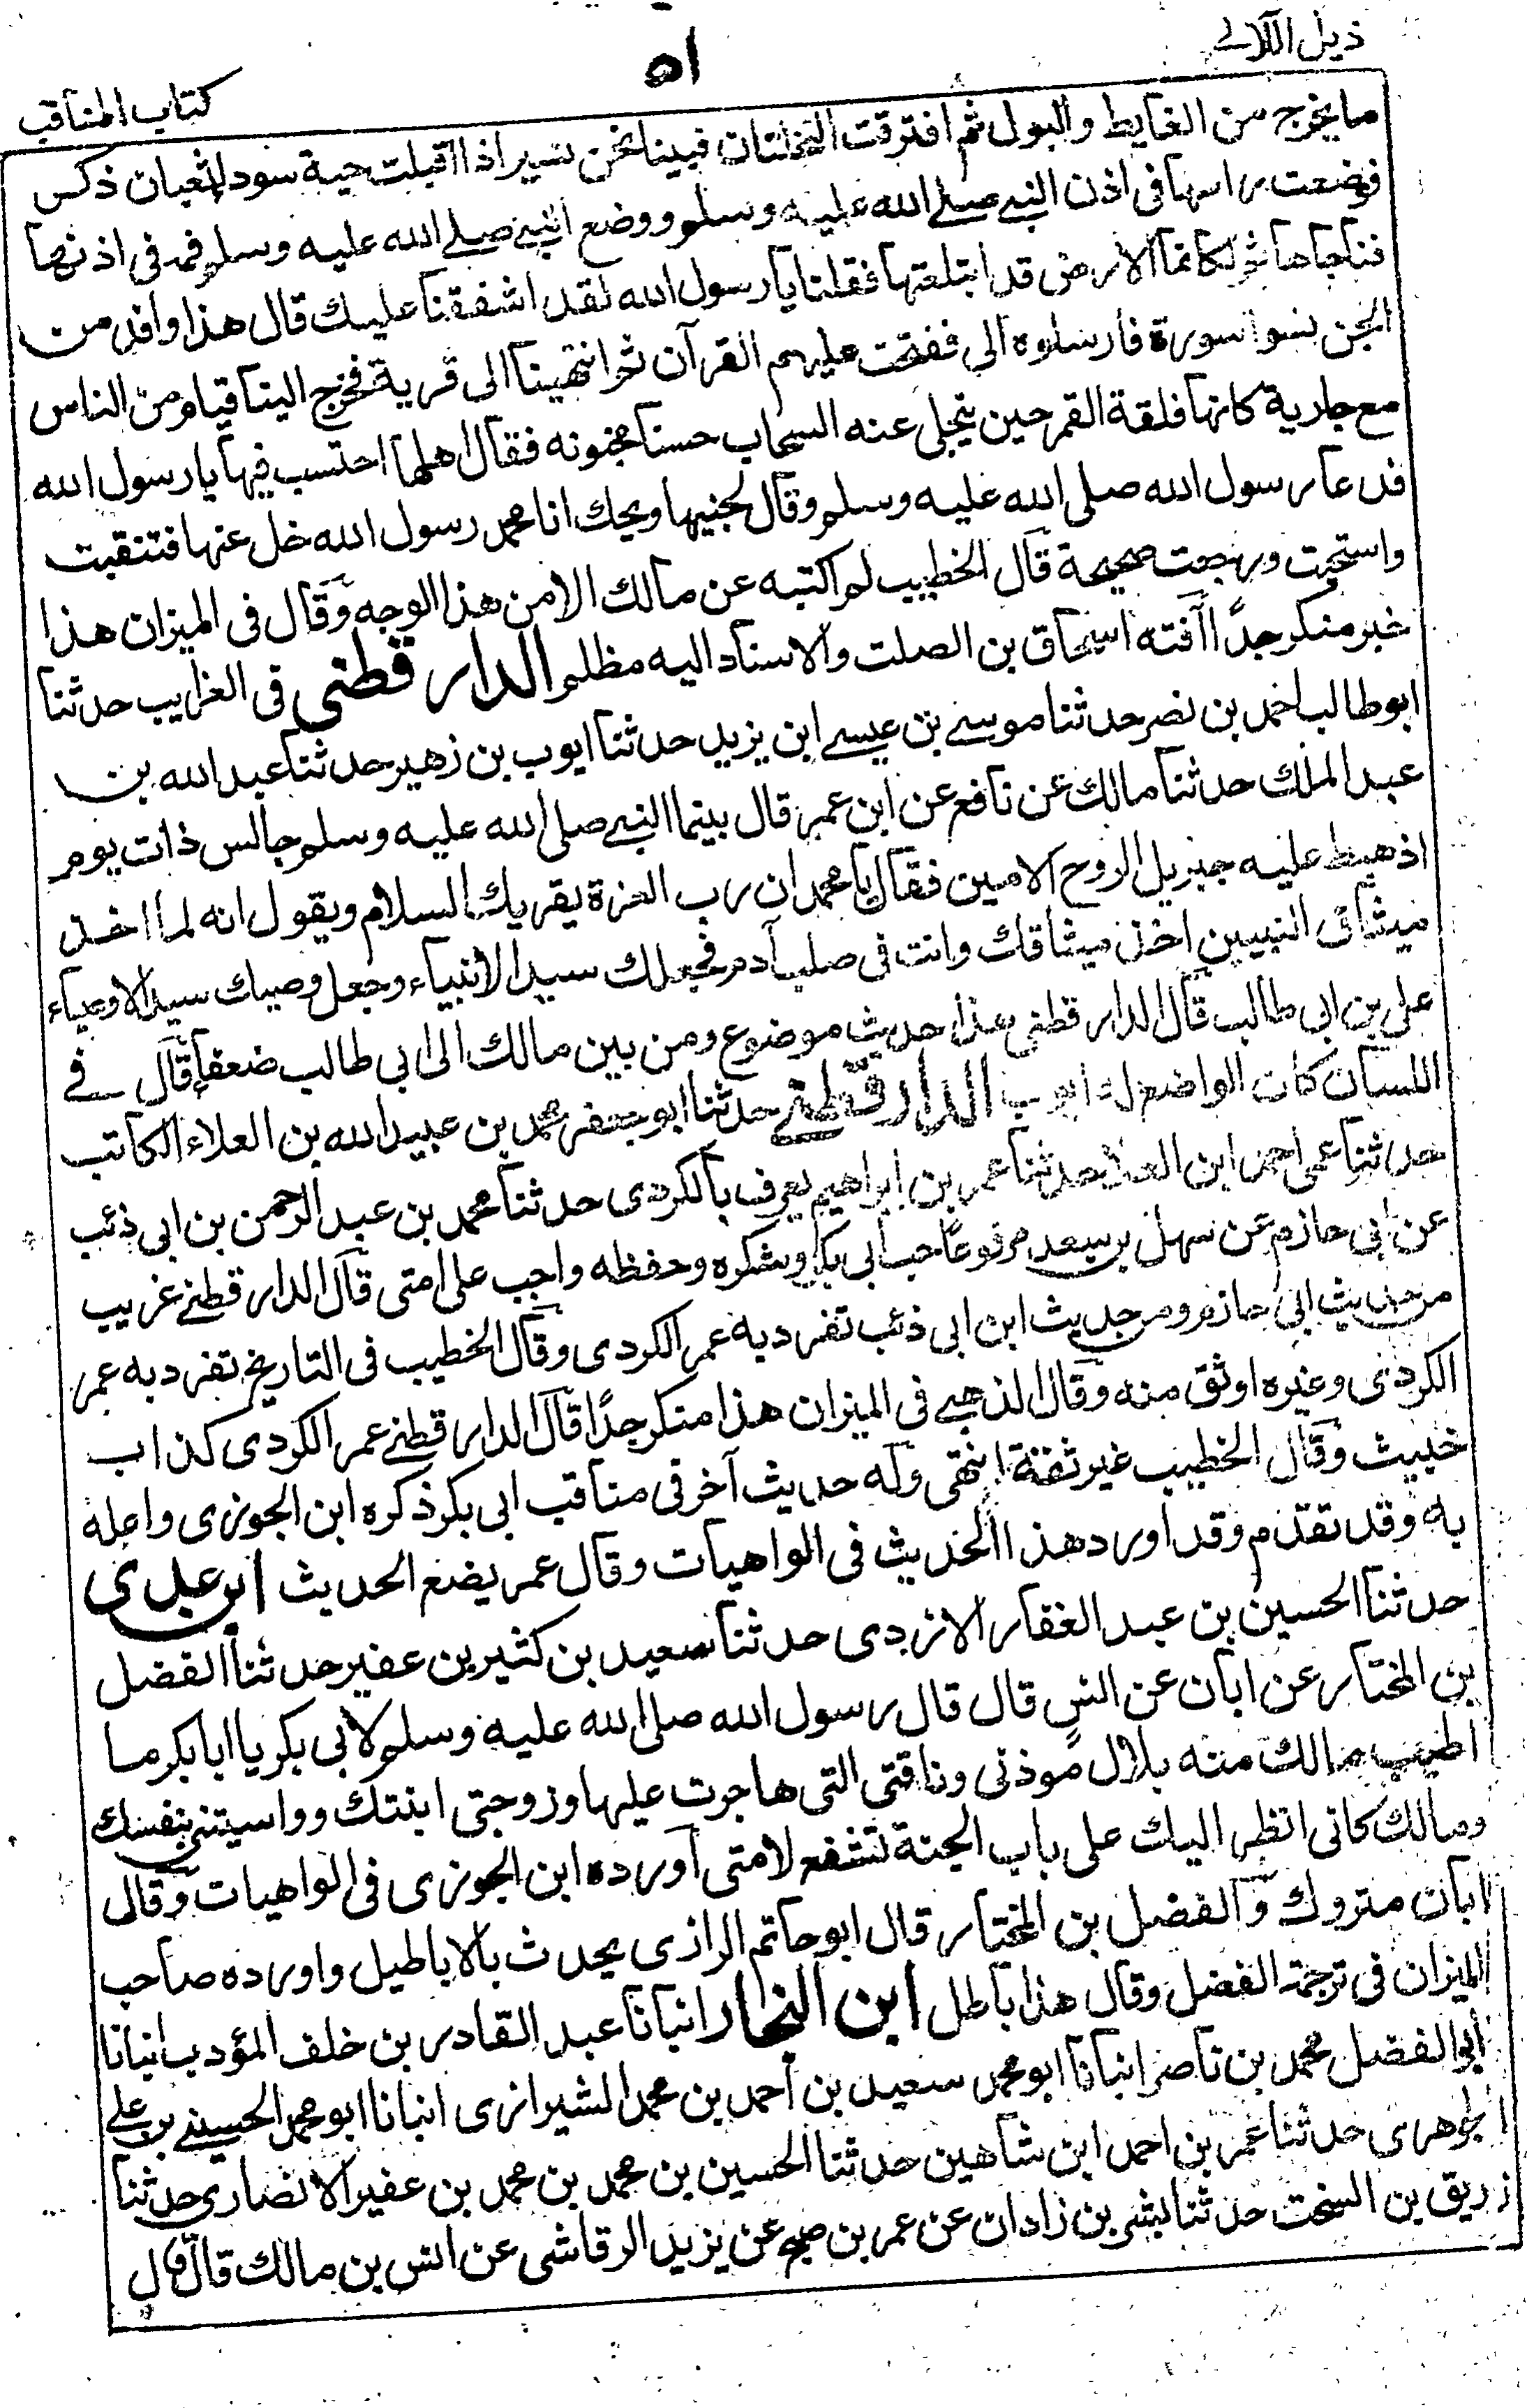 ذيل اللآلى
٥١
كتاب المناقب
ما يخرج من الغايط والبول ثم افترقت النخلتان فبينا نحن نسير اذا اقبلت حية سوداء ثعبان ذكر
فوضعت راسها فى اذن النبى صلى الله عليه وسلم ووضع النبى صلى الله عليه وسلم فمه فى اذنها
فناجاها ثم لكانما الارض قد ابتلعتها فقلنا يا رسول الله لقد اشفقنا عليك قال هذا وافد من
الجن نسوا سورة فارسلوه الى ففتحت عليهم القرآن ثم انتهينا الى قرية فخرج الينا قيام من الناس
مع جارية كانها فلقة القمر حين ينجلى عنه السحاب حسنا مجنونه فقال اهلها احتسب فيها يا رسول الله
فدعا رسول الله صلى الله عليه وسلم وقال لجنيها ويحك انا محمد رسول الله خل عنها فتنقبت
واستحيت ورجعت صحيحة قال الخطيب لم اكتبه عن مالك الا من هذا الوجه وقال فى الميزان هذا
خبر منكر جدًا آفته اسحاق بن الصلت والاسناد اليه مظلم الدارقطنى فى الغرايب حدثنا
ابو طالب احمد بن نصر حدثنا موسى بن عيسى ابن يزيد حدثنا ايوب بن زهير حدثنا عبد الله بن
عبد الملك حدثنا مالك عن نافع عن ابن عمر قال بينما النبى صلى الله عليه وسلم جالس ذات يوم
اذ هبط عليه جبريل الروح الامين فقال يا محمد ان رب العزة يقريك السلام ويقول انه لما اخذ
ميثاق النبيين اخذ ميثاقك وانت فى صلب آدم فجعلك سيد الانبياء وجعل وصيك سيد الاوصياء
على بن ابى طالب قال الدارقطنى هذا حديث موضوع ومن بين مالك الى ابى طالب ضعفا قال فى
اللسان كان الواضع له ايوب الدارقطنى حدثنا ابو جعفر محمد بن عبيد الله بن العلاء الكاتب
حدثنا عمى احمد ابن العلاء حدثنا عمر بن ابراهيم يعرف بالكردى حدثنا محمد بن عبد الرحمن بن ابى ذئب
عن ابى حازم عن سهل بن سعد مرفوعًا حب ابى بكر وشكره وحفظه واجب على امتى قال الدارقطنى غريب
من حديث ابى حازم ومن حديث ابن ابى ذئب تفرد به عمر الكردى وقال الخطيب فى التاريخ تفرد به عمر
الكردى وغيره اوثق منه وقال الذهبى فى الميزان هذا منكر جدًا قال الدارقطنى عمر الكردى كذاب
خبيث وقال الخطيب غير ثقة انتهى وله حديث آخر فى مناقب ابى بكر ذكره ابن الجوزى واعله
به وقد تقدم وقد اورد هذا الحديث فى الواهيات وقال عمر يضع الحديث ابن عدى
حدثنا الحسين بن عبد الغفار الازدى حدثنا سعيد بن كثير بن عفير حدثنا الفضل
بن المختار عن ابان عن انس قال قال رسول الله صلى الله عليه وسلم لابى بكر يا ابا بكر ما
اطيب مالك منه بلال موذنى وناقتى التى هاجرت عليها وزوجتى ابنتك وواسيتنى بنفسك
ومالك كانى انظر اليك على باب الجنة تشفع لامتى اورده ابن الجوزى فى الواهيات وقال
ابان متروك والفضل بن المختار قال ابو حاتم الرازى يحدث بالاباطيل واورده صاحب
الميزان فى ترجمة الفضل وقال هذا باطل ابن النجار انبانا عبد القادر بن خلف المؤدب انبانا
ابو الفضل محمد بن ناصر انبانا ابو محمد سعيد بن احمد بن محمد الشيرازى انبانا ابو محمد الحسين بن على
الجوهرى حدثنا عمر بن احمد ابن شاهين حدثنا الحسين بن محمد بن محمد بن عفير الانصارى حدثنا
زريق بن السخت حدثنا بشر بن زاذان عن عمر بن صبح عن يزيد الرقاشى عن انس بن مالك قال قال